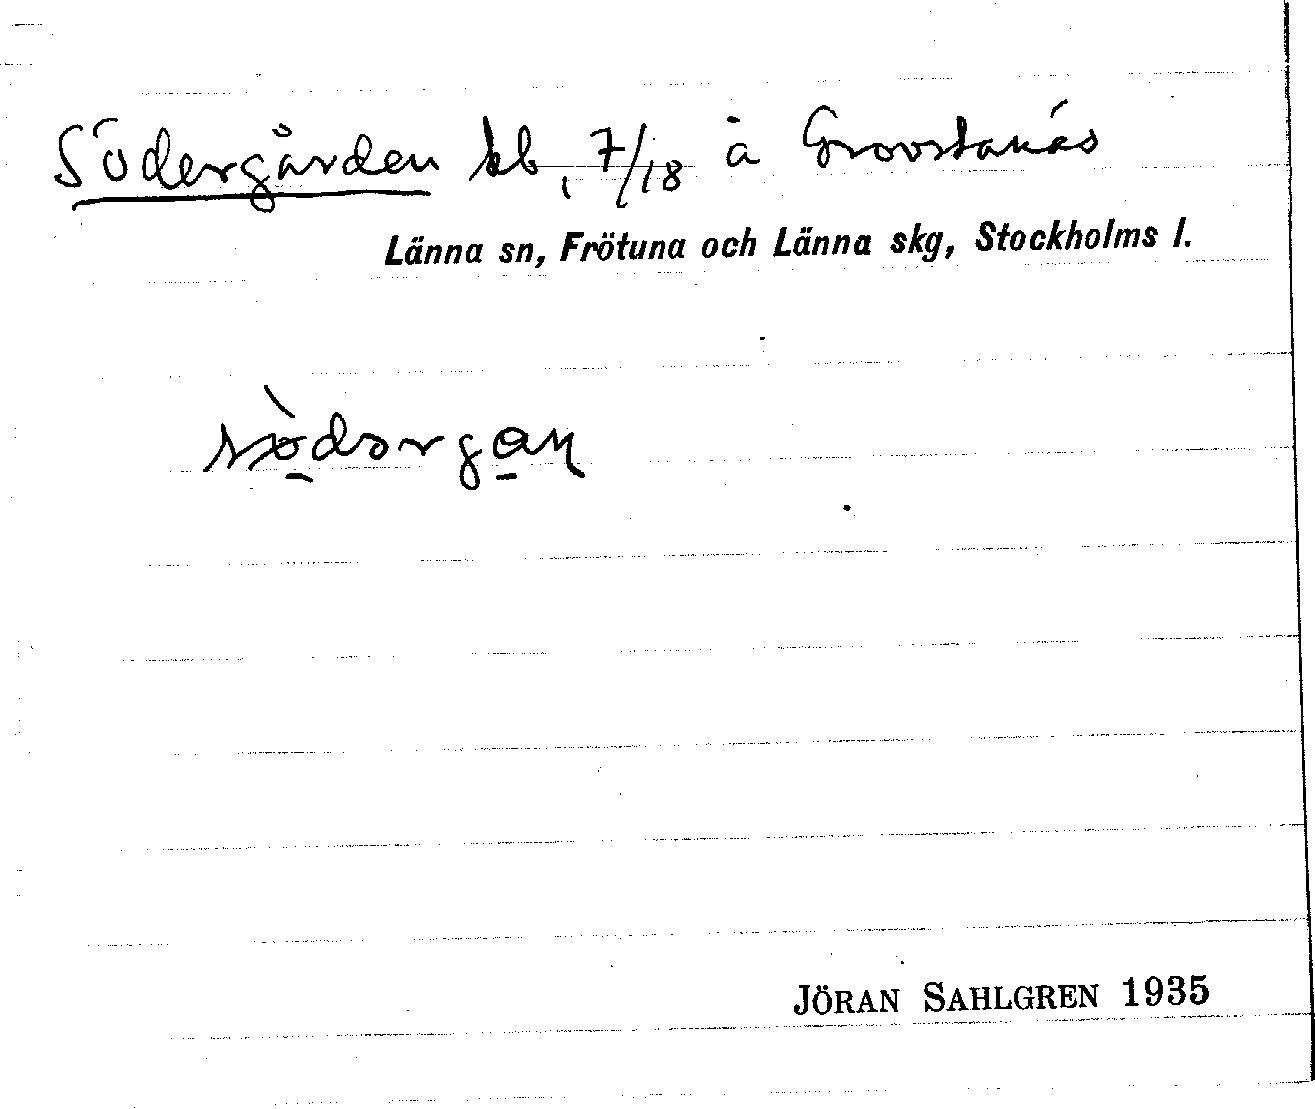 Södergården hb, 7/18 å Grovstanäs
Länna sn, Frötuna och Länna skg, Stockholms l.
JÖRAN SAHLGREN 1935